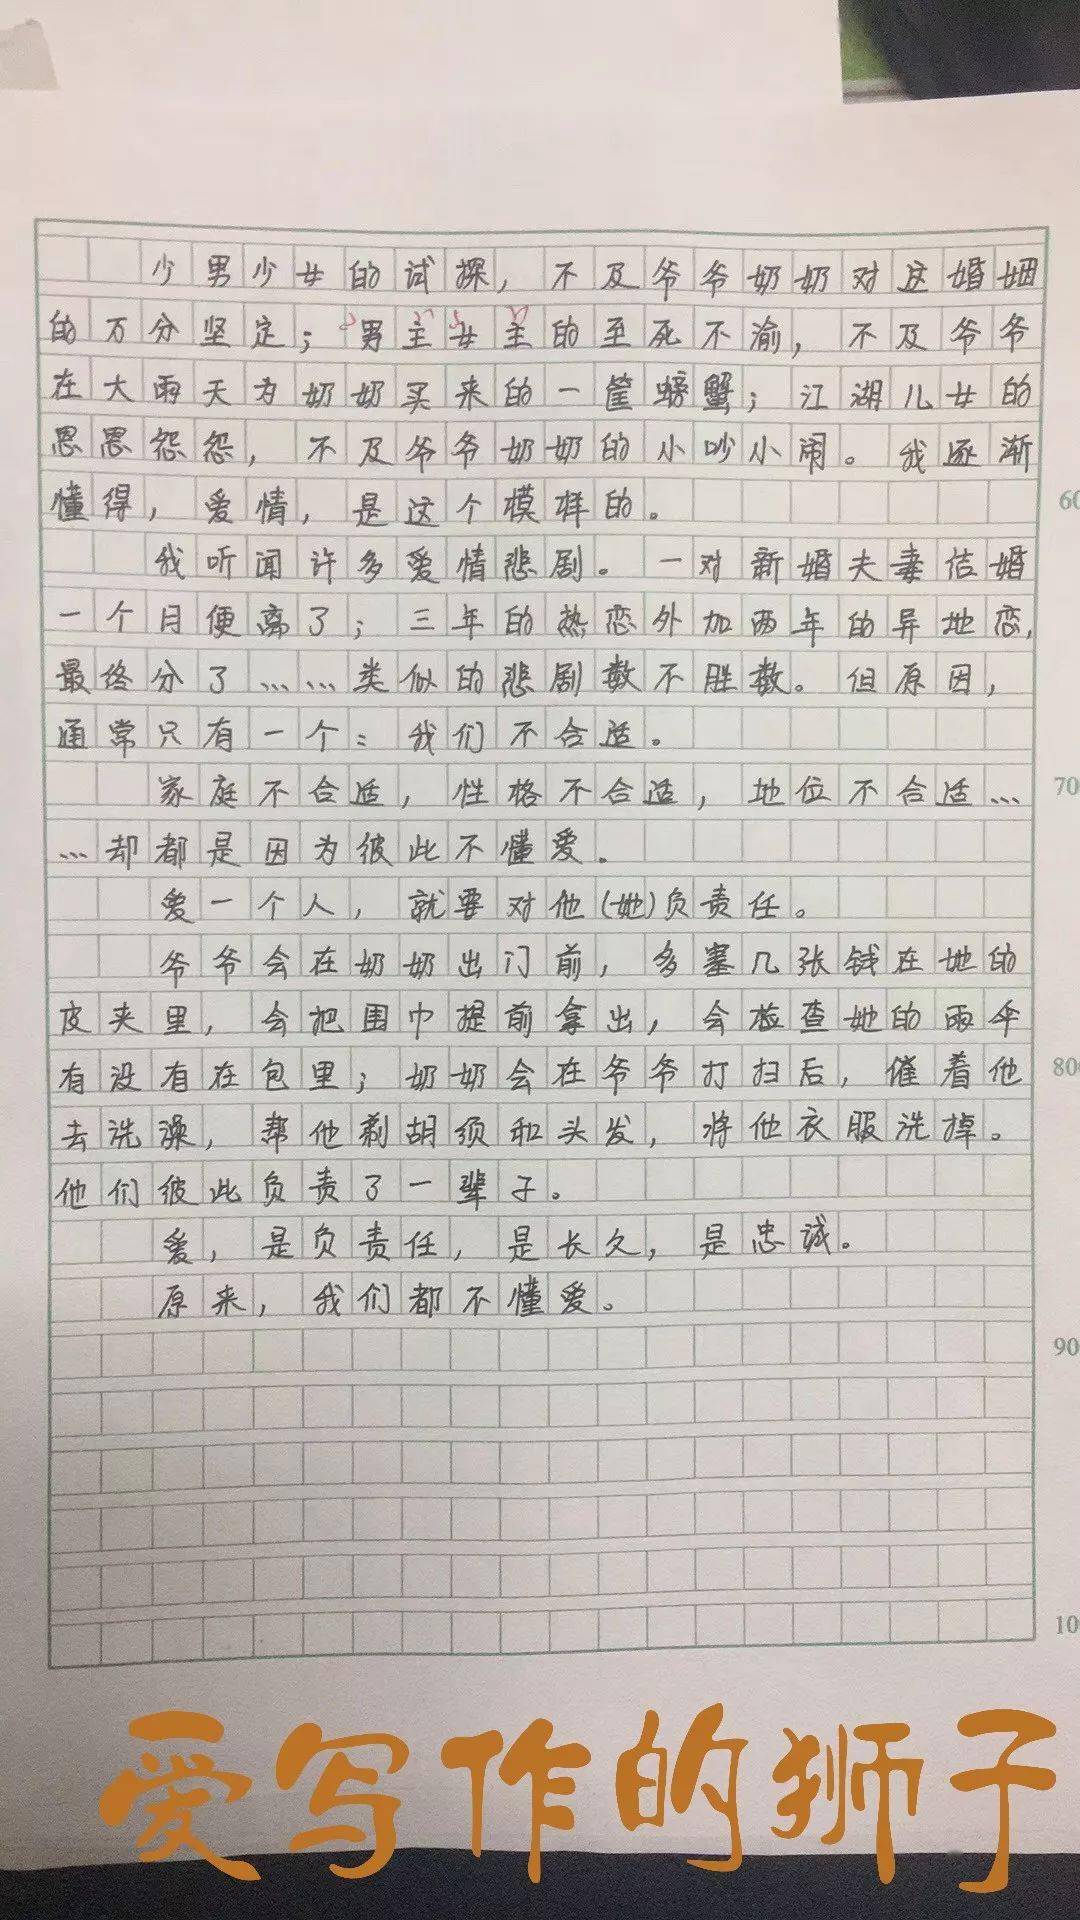 少男少女的试探，不及爷爷奶奶对这婚姻
的万分坚定；男主女主的至死不渝，不及爷爷
在大雨天为奶奶买来的一筐螃蟹；江湖儿女的
恩恩怨怨，不及爷爷奶奶的小吵小闹。我逐渐
懂得，爱情，是这个模样的。
60
我听闻许多爱情悲剧。一对新婚夫妻结婚
一个月便离了；三年的热恋外加两年的异地恋，
最终分了……类似的悲剧数不胜数。但原因，
通常只有一个：我们不合适。
家庭不合适，性格不合适，地位不合适…
70
…却都是因为彼此不懂爱。
爱一个人，就要对他(她)负责任。
爷爷会在奶奶出门前，多塞几张钱在她的
皮夹里，会把围巾提前拿出，会检查她的雨伞
有没有在包里；奶奶会在爷爷打扫后，催着他
800
去洗澡，帮他剃胡须和头发，将他衣服洗掉。
他们彼此负责了一辈子。
爱，是负责任，是长久，是忠诚。
原来，我们都不懂爱。
90
10
爱写作的狮子